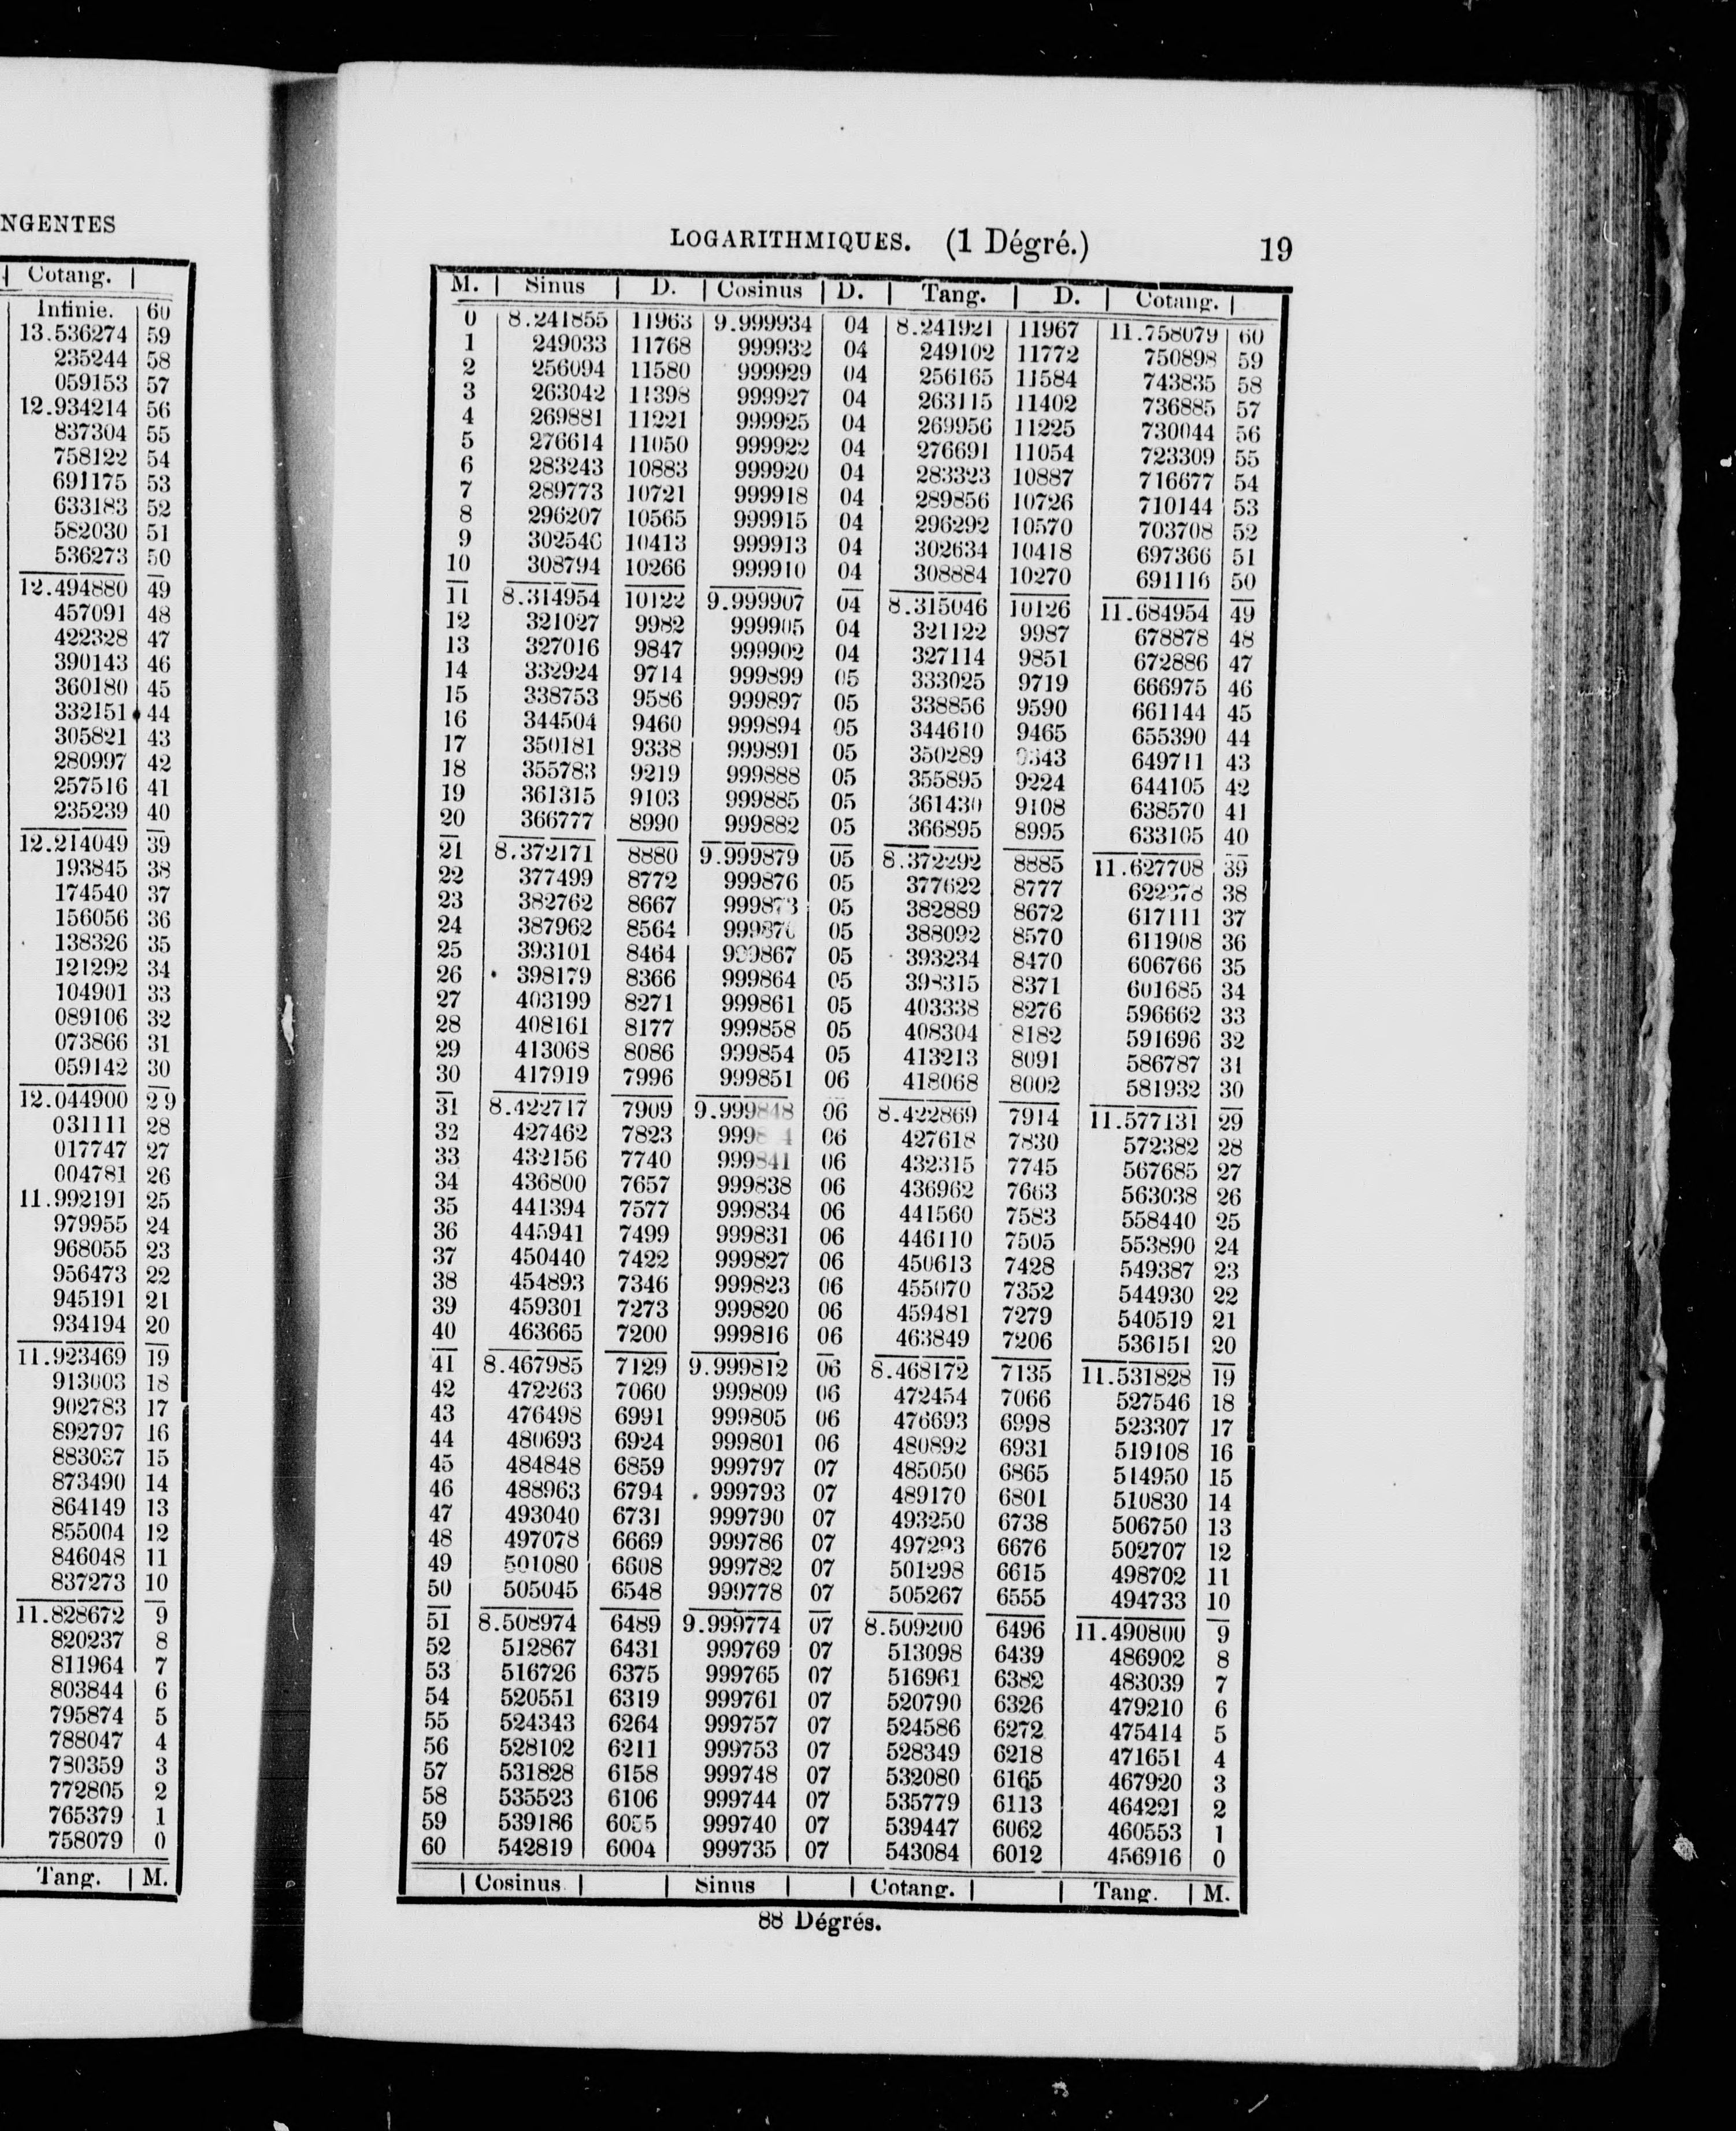 NGENTES
Cotang.
Infinie. 60
13.536274 59
235244 58
059153 57
12.934214 56
837304 55
758122 54
691175 53
633183 52
582030 51
536273 50
12.494880 49
457091 48
422328 47
390143 46
360180 45
332151 44
305821 43
280997 42
257516 41
235239 40
12.214049 39
193845 38
174540 37
156056 36
138326 35
121292 34
104901 33
089106 32
073866 31
059142 30
12.044900 29
031111 28
017747 27
004781 26
11.992191 25
979955 24
968055 23
956473 22
945191 21
934194 20
11.923469 19
913003 18
902783 17
892797 16
883037 15
873490 14
864149 13
855004 12
846048 11
837273 10
11.828672 9
820237 8
811964 7
803844 6
795874 5
788047 4
780359 3
772805 2
765379 1
758079 0
Tang. M.
LOGARITHMIQUES. (1 Dégré.) 19
M. Sinus D. Cosinus D. Tang. D. Cotang.
0 8.241855 11963 9.999934 04 8.241921 11967 11.758079 60
1 249033 11768 999932 04 249102 11772 750898 59
2 256094 11580 999929 04 256165 11584 743835 58
3 263042 11398 999927 04 263115 11402 736885 57
4 269881 11221 999925 04 269956 11225 730044 56
5 276614 11050 999922 04 276691 11054 723309 55
6 283243 10883 999920 04 283323 10887 716677 54
7 289773 10721 999918 04 289856 10726 710144 53
8 296207 10565 999915 04 296292 10570 703708 52
9 302546 10413 999913 04 302634 10418 697366 51
10 308794 10266 999910 04 308884 10270 691116 50
11 8.314954 10122 9.999907 04 8.315046 10126 11.684954 49
12 321027 9982 999905 04 321122 9987 678878 48
13 327016 9847 999902 04 327114 9851 672886 47
14 332924 9714 999899 05 333025 9719 666975 46
15 338753 9586 999897 05 338856 9590 661144 45
16 344504 9460 999894 05 344610 9465 655390 44
17 350181 9338 999891 05 350289 9343 649711 43
18 355783 9219 999888 05 355895 9224 644105 42
19 361315 9103 999885 05 361430 9108 638570 41
20 366777 8990 999882 05 366895 8995 633105 40
21 8.372171 8880 9.999879 05 8.372292 8885 11.627708 39
22 377499 8772 999876 05 377622 8777 622378 38
23 382762 8667 999873 05 382889 8672 617111 37
24 387962 8564 999870 05 388092 8570 611908 36
25 393101 8464 999867 05 393234 8470 606766 35
26 398179 8366 999864 05 398315 8371 601685 34
27 403199 8271 999861 05 403338 8276 596662 33
28 408161 8177 999858 05 408304 8182 591696 32
29 413068 8086 999854 05 413213 8091 586787 31
30 417919 7996 999851 06 418068 8002 581932 30
31 8.422717 7909 9.999848 06 8.422869 7914 11.577131 29
32 427462 7823 06 427618 7830 572382 28
33 432156 7740 999841 06 432315 7745 567685 27
34 436800 7657 999838 06 436962 7663 563038 26
35 441394 7577 999834 06 441560 7583 558440 25
36 445941 7499 999831 06 446110 7505 553890 24
37 450440 7422 999827 06 450613 7428 549387 23
38 454893 7346 999823 06 455070 7352 544930 22
39 459301 7273 999820 06 459481 7279 540519 21
40 463665 7200 999816 06 463849 7206 536151 20
41 8.467985 7129 9.999812 06 8.468172 7135 11.531828 19
42 472263 7060 999809 06 472454 7066 527546 18
43 476498 6991 999805 06 476693 6998 523307 17
44 480693 6924 999801 06 480892 6931 519108 16
45 484848 6859 999797 07 485050 6865 514950 15
46 488963 6794 999793 07 489170 6801 510830 14
47 493040 6731 999790 07 493250 6738 506750 13
48 497078 6669 999786 07 497293 6676 502707 12
49 501080 6608 999782 07 501298 6615 498702 11
50 505045 6548 999778 07 505267 6555 494733 10
51 8.508974 6489 9.999774 07 8.509200 6496 11.490800 9
52 512867 6431 999769 07 513098 6439 486902 8
53 516726 6375 999765 07 516961 6382 483039 7
54 520551 6319 999761 07 520790 6326 479210 6
55 524343 6264 999757 07 524586 6272 475414 5
56 528102 6211 999753 07 528349 6218 471651 4
57 531828 6158 999748 07 532080 6165 467920 3
58 535523 6106 999744 07 535779 6113 464221 2
59 539186 6055 999740 07 539447 6062 460553 1
60 542819 6004 999735 07 543084 6012 456916 0
Cosinus Sinus Cotang. Tang. M.
88 Dégrés.